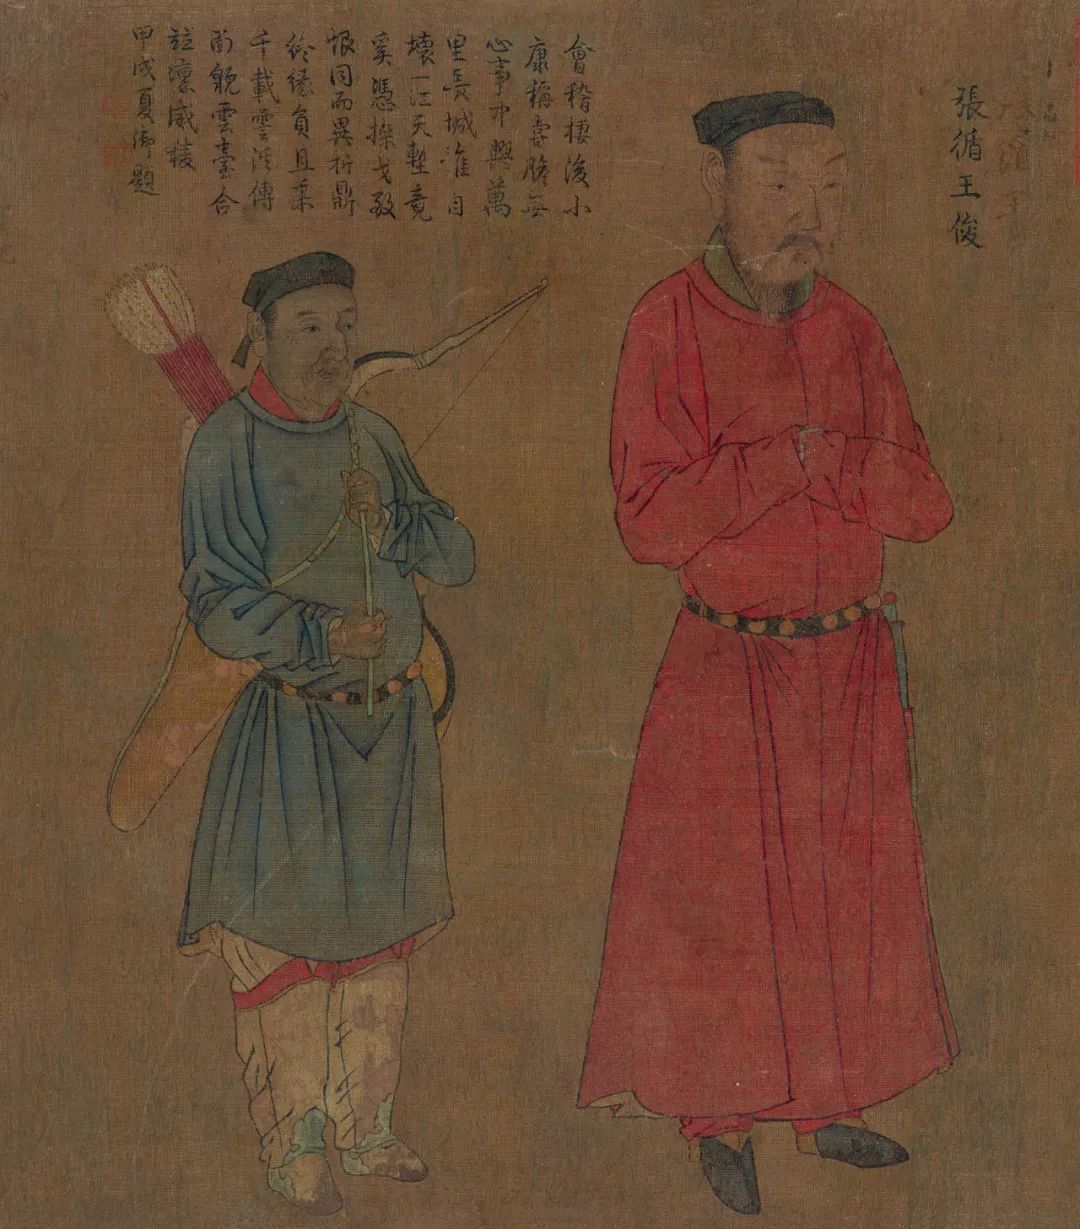 張循王俊
會稽棲後小
康稱嘗膽無
心事中興萬
里長城誰自
壞一江天塹竟
奚憑操戈敢
恨同而異折鼎
終緣負且乘
千載雲泥傳
面貌雲臺合
註凜威棱
甲戌夏御題